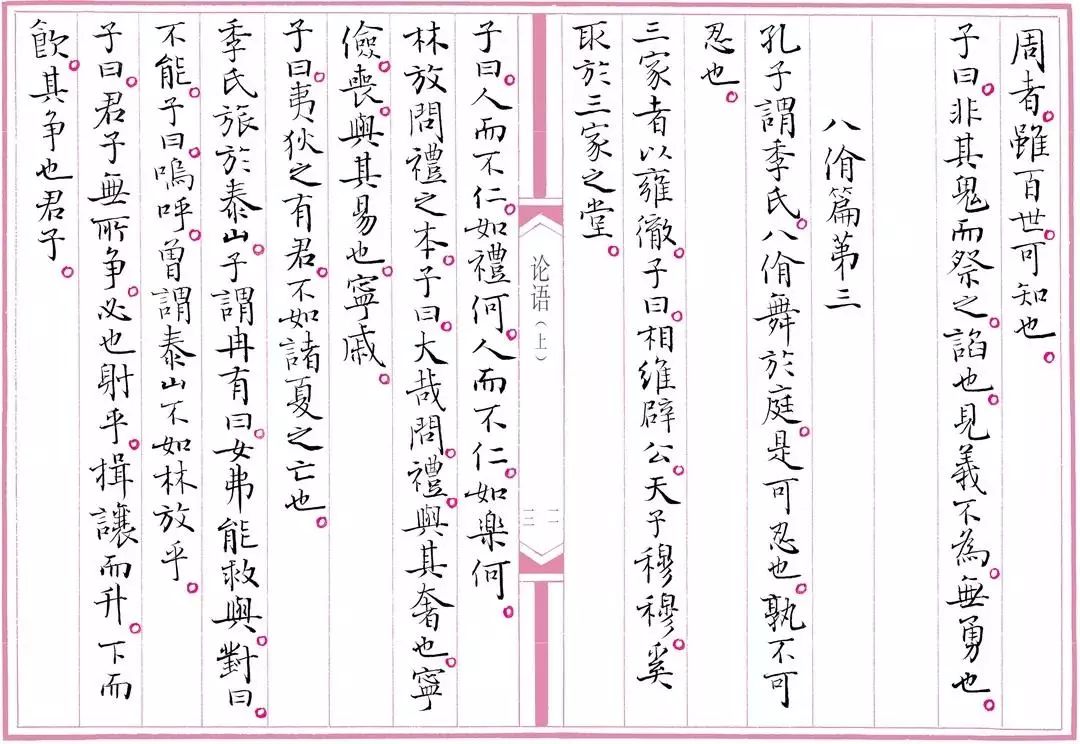 周者。雖百世。可知也。
子曰。非其鬼而祭之。諂也。見義不為。無勇也。
八佾篇第三
孔子謂季氏。八佾舞於庭。是可忍也。孰不可
忍也。
三家者以雍徹。子曰。相維辟公。天子穆穆。奚
取於三家之堂。
论语(上)
一二
三
子曰。人而不仁。如禮何。人而不仁。如樂何。
林放問禮之本。子曰。大哉問。禮。與其奢也。寧
儉。喪。與其易也。寧戚。
子曰。夷狄之有君。不如諸夏之亡也。
季氏旅於泰山。子謂冉有曰。女弗能救與。對曰。
不能。子曰。嗚呼。曾謂泰山不如林放乎。
子曰。君子無所争。必也射乎。揖讓而升。下而
飲。其争也君子。